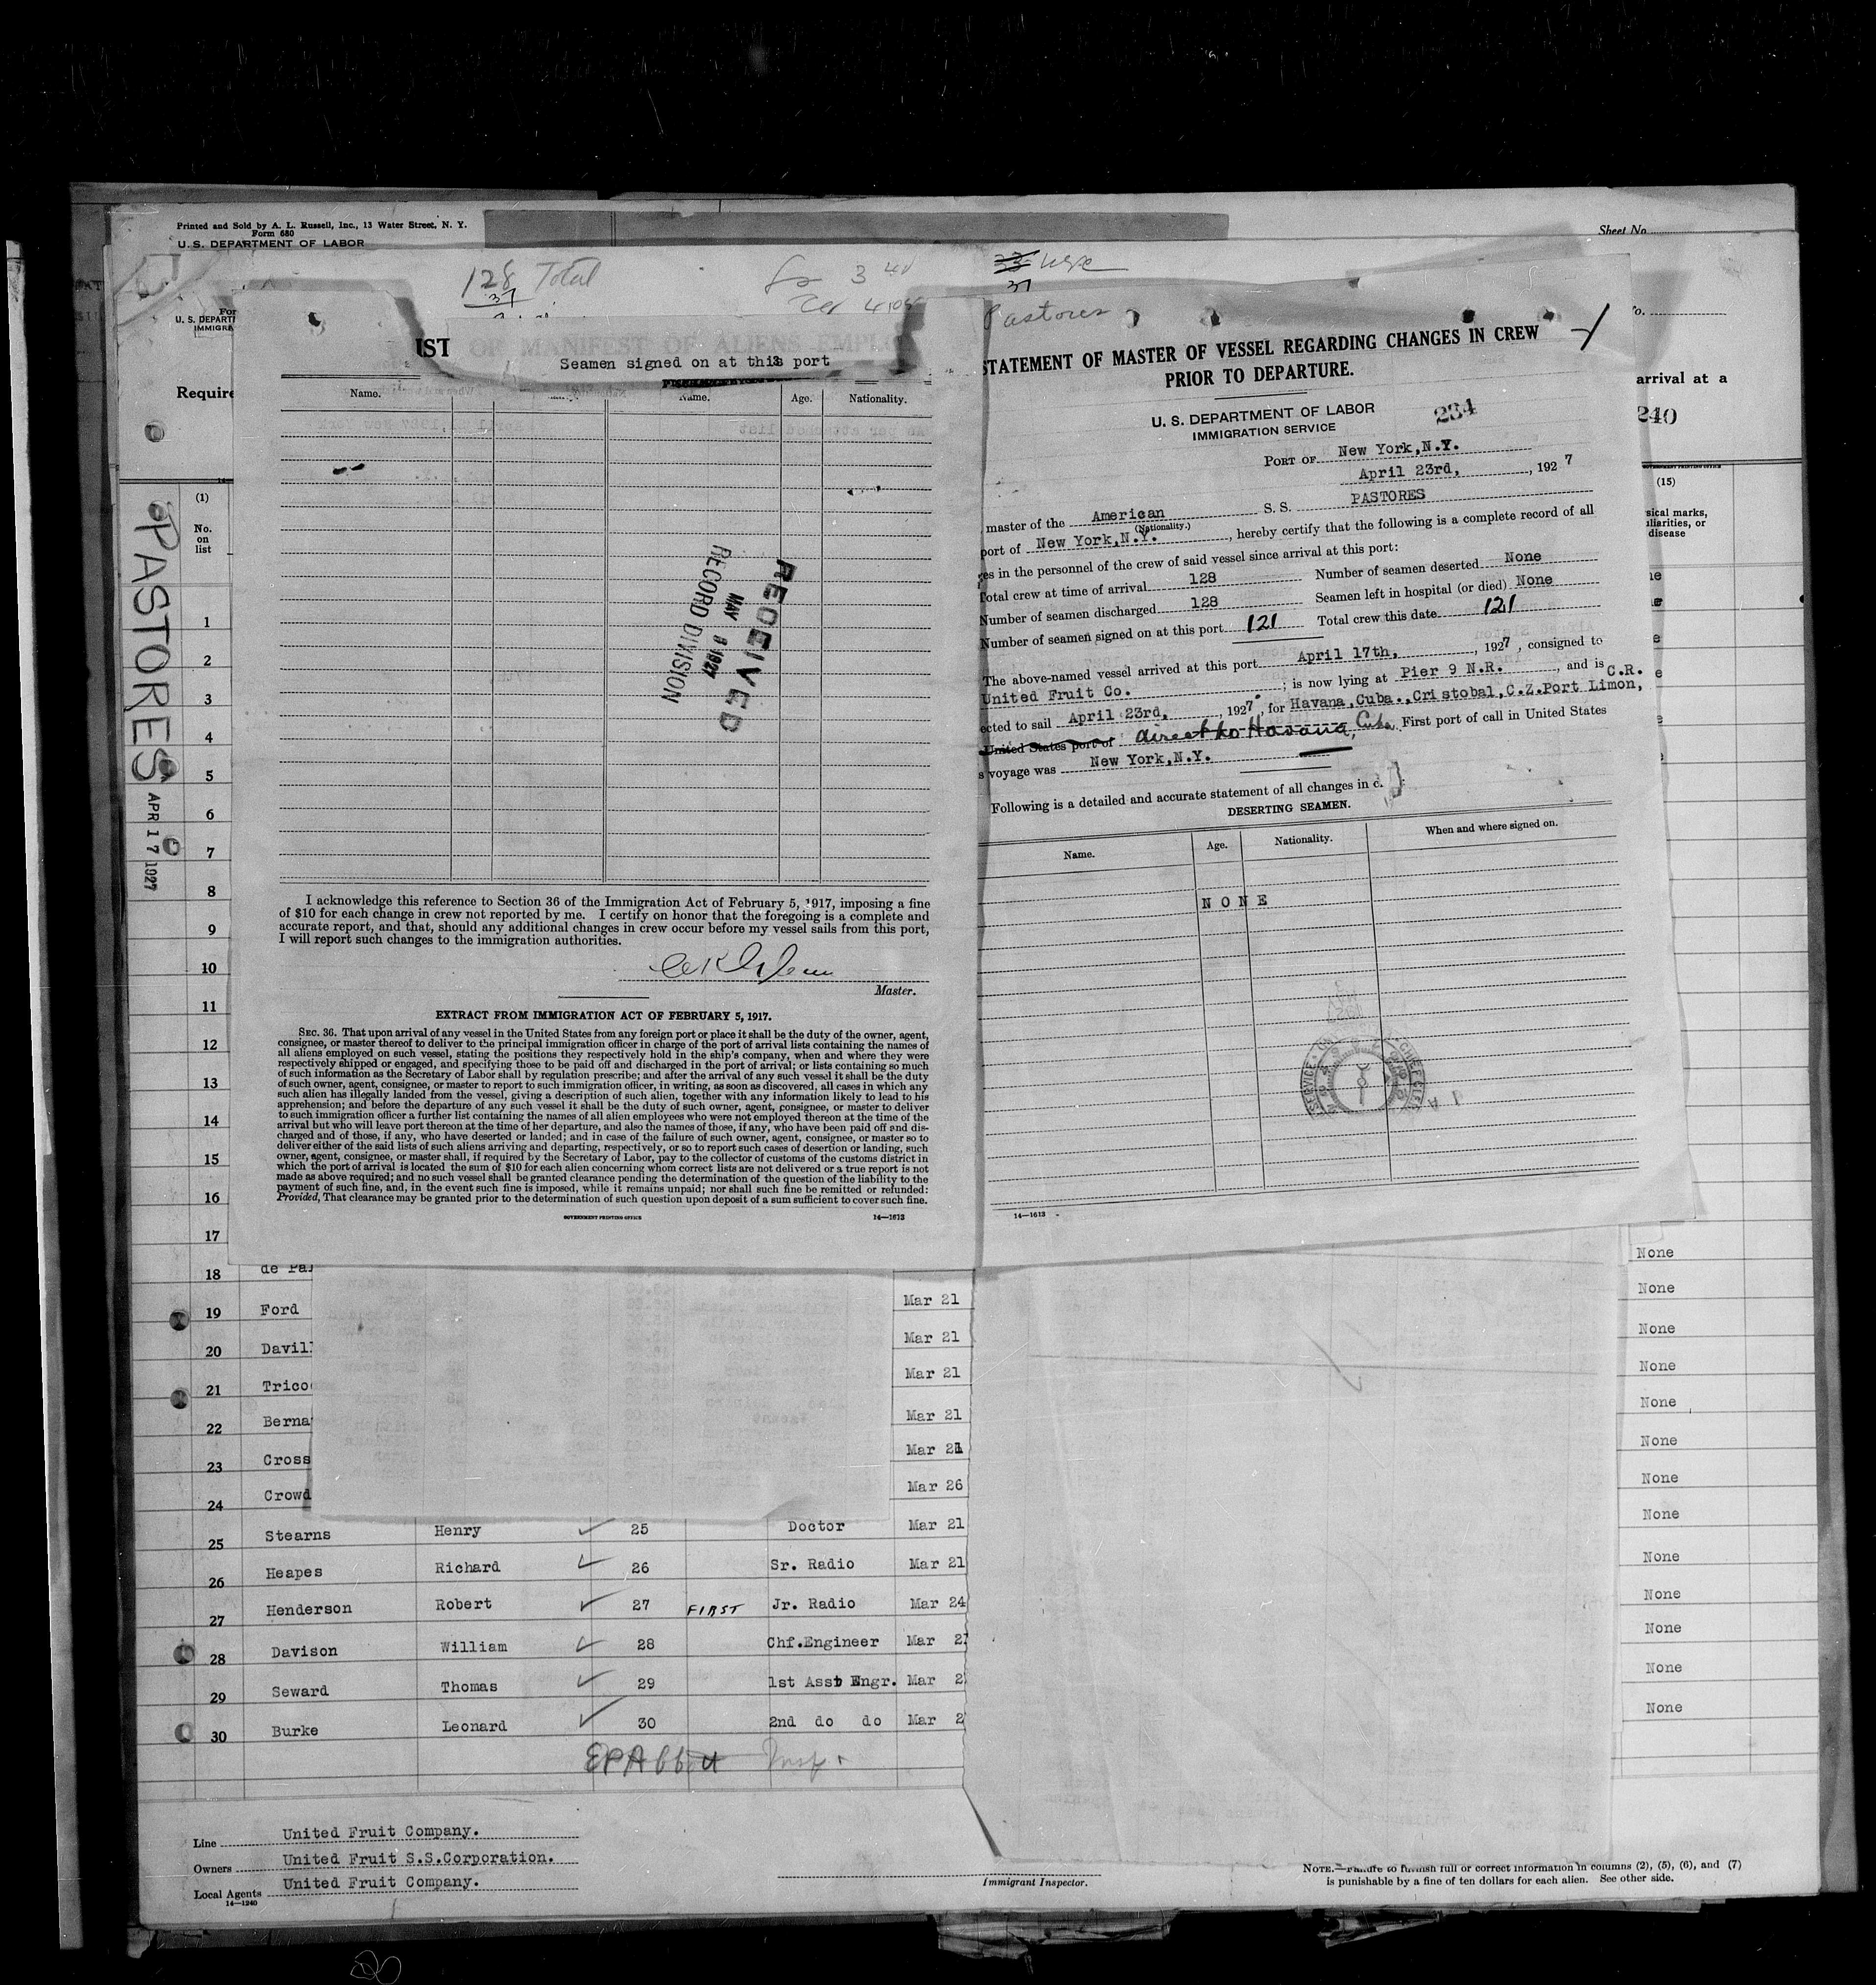 Printed and Sold by A. L. Russell, Inc., 13 Water Street, N. Y.
Form 680
U. S. DEPARTMENT OF LABOR
Sheet No.
128 Total
37
3
33
37
Pastores
U. S. DEPARTM
IMMIGRA
Require
arrival at a
240
PASTORES
APR 17 1927
(1)
No.
on
list
(15)
sical marks,
uliarities, or
disease
IST OF MANIFEST OF ALIENS EMPLO
Seamen signed on at this port
Name.
Name.
Age.
Nationality.
RECEIVED
MAY 1927
RECORD DIVISION
I acknowledge this reference to Section 36 of the Immigration Act of February 5, 1917, imposing a fine
of $10 for each change in crew not reported by me. I certify on honor that the foregoing is a complete and
accurate report, and that, should any additional changes in crew occur before my vessel sails from this port,
I will report such changes to the immigration authorities.
Master.
EXTRACT FROM IMMIGRATION ACT OF FEBRUARY 5, 1917.
SEC. 36. That upon arrival of any vessel in the United States from any foreign port or place it shall be the duty of the owner, agent,
consignee, or master thereof to deliver to the principal immigration officer in charge of the port of arrival lists containing the names of
all aliens employed on such vessel, stating the positions they respectively hold in the ship's company, when and where they were
respectively shipped or engaged, and specifying those to be paid off and discharged in the port of arrival; or lists containing so much
of such information as the Secretary of Labor shall by regulation prescribe; and after the arrival of any such vessel it shall be the duty
of such owner, agent, consignee, or master to report to such immigration officer, in writing, as soon as discovered, all cases in which any
such alien has illegally landed from the vessel, giving a description of such alien, together with any information likely to lead to his
apprehension; and before the departure of any such vessel it shall be the duty of such owner, agent, consignee, or master to deliver
to such immigration officer a further list containing the names of all alien employees who were not employed thereon at the time of the
arrival but who will leave port thereon at the time of her departure, and also the names of those, if any, who have been paid off and dis-
charged and of those, if any, who have deserted or landed; and in case of the failure of such owner, agent, consignee, or master so to
deliver either of the said lists of such aliens arriving and departing, respectively, or so to report such cases of desertion or landing, such
owner, agent, consignee, or master shall, if required by the Secretary of Labor, pay to the collector of customs of the customs district in
which the port of arrival is located the sum of $10 for each alien concerning whom correct lists are not delivered or a true report is not
made as above required; and no such vessel shall be granted clearance pending the determination of the question of the liability to the
payment of such fine, and, in the event such fine is imposed, while it remains unpaid; nor shall such fine be remitted or refunded:
Provided, That clearance may be granted prior to the determination of such question upon deposit of a sum sufficient to cover such fine.
GOVERNMENT PRINTING OFFICE
14—1613
STATEMENT OF MASTER OF VESSEL REGARDING CHANGES IN CREW
PRIOR TO DEPARTURE.
U. S. DEPARTMENT OF LABOR
IMMIGRATION SERVICE
234
PORT OF New York,N.Y.
April 23rd, , 1927
master of the American S. S. PASTORES
(Nationality.)
port of New York,N.Y. , hereby certify that the following is a complete record of all
ges in the personnel of the crew of said vessel since arrival at this port:
Total crew at time of arrival 128 Number of seamen deserted None
Number of seamen discharged 128 Seamen left in hospital (or died) None
Number of seamen signed on at this port 121 Total crew this date 121
The above-named vessel arrived at this port April 17th, , 1927 , consigned to
United Fruit Co. ; is now lying at Pier 9 N.R. , and is
C.R.
ected to sail April 23rd, 1927 , for Havana,Cuba.,Cristobal,C.Z.Port Limon,
United States port of direct to Havana, Cuba. First port of call in United States
s voyage was New York,N.Y.
Following is a detailed and accurate statement of all changes in c
DESERTING SEAMEN.
Name.
Age.
Nationality.
When and where signed on.
NONE
14—1613
1
2
3
4
5
6
7
8
9
10
11
12
13
14
15
16
17 None
18 de Pa None
19 Ford Mar 21 None
20 Davil Mar 21 None
21 Trico Mar 21 None
22 Berna Mar 21 None
23 Cross Mar 21 None
24 Crowd Mar 26 None
25 Stearns Henry 25 Doctor Mar 21 None
26 Heapes Richard 26 Sr. Radio Mar 21 None
27 Henderson Robert 27 FIRST Jr. Radio Mar 24 None
28 Davison William 28 Chf.Engineer Mar 2 None
29 Seward Thomas 29 1st Asst Engr. Mar 2 None
30 Burke Leonard 30 2nd do do Mar 2
Line United Fruit Company.
Owners United Fruit S.S.Corporation.
Local Agents United Fruit Company.
14—1240
Immigrant Inspector.
NOTE.—Failure to furnish full or correct information in columns (2), (5), (6), and (7)
is punishable by a fine of ten dollars for each alien. See other side.